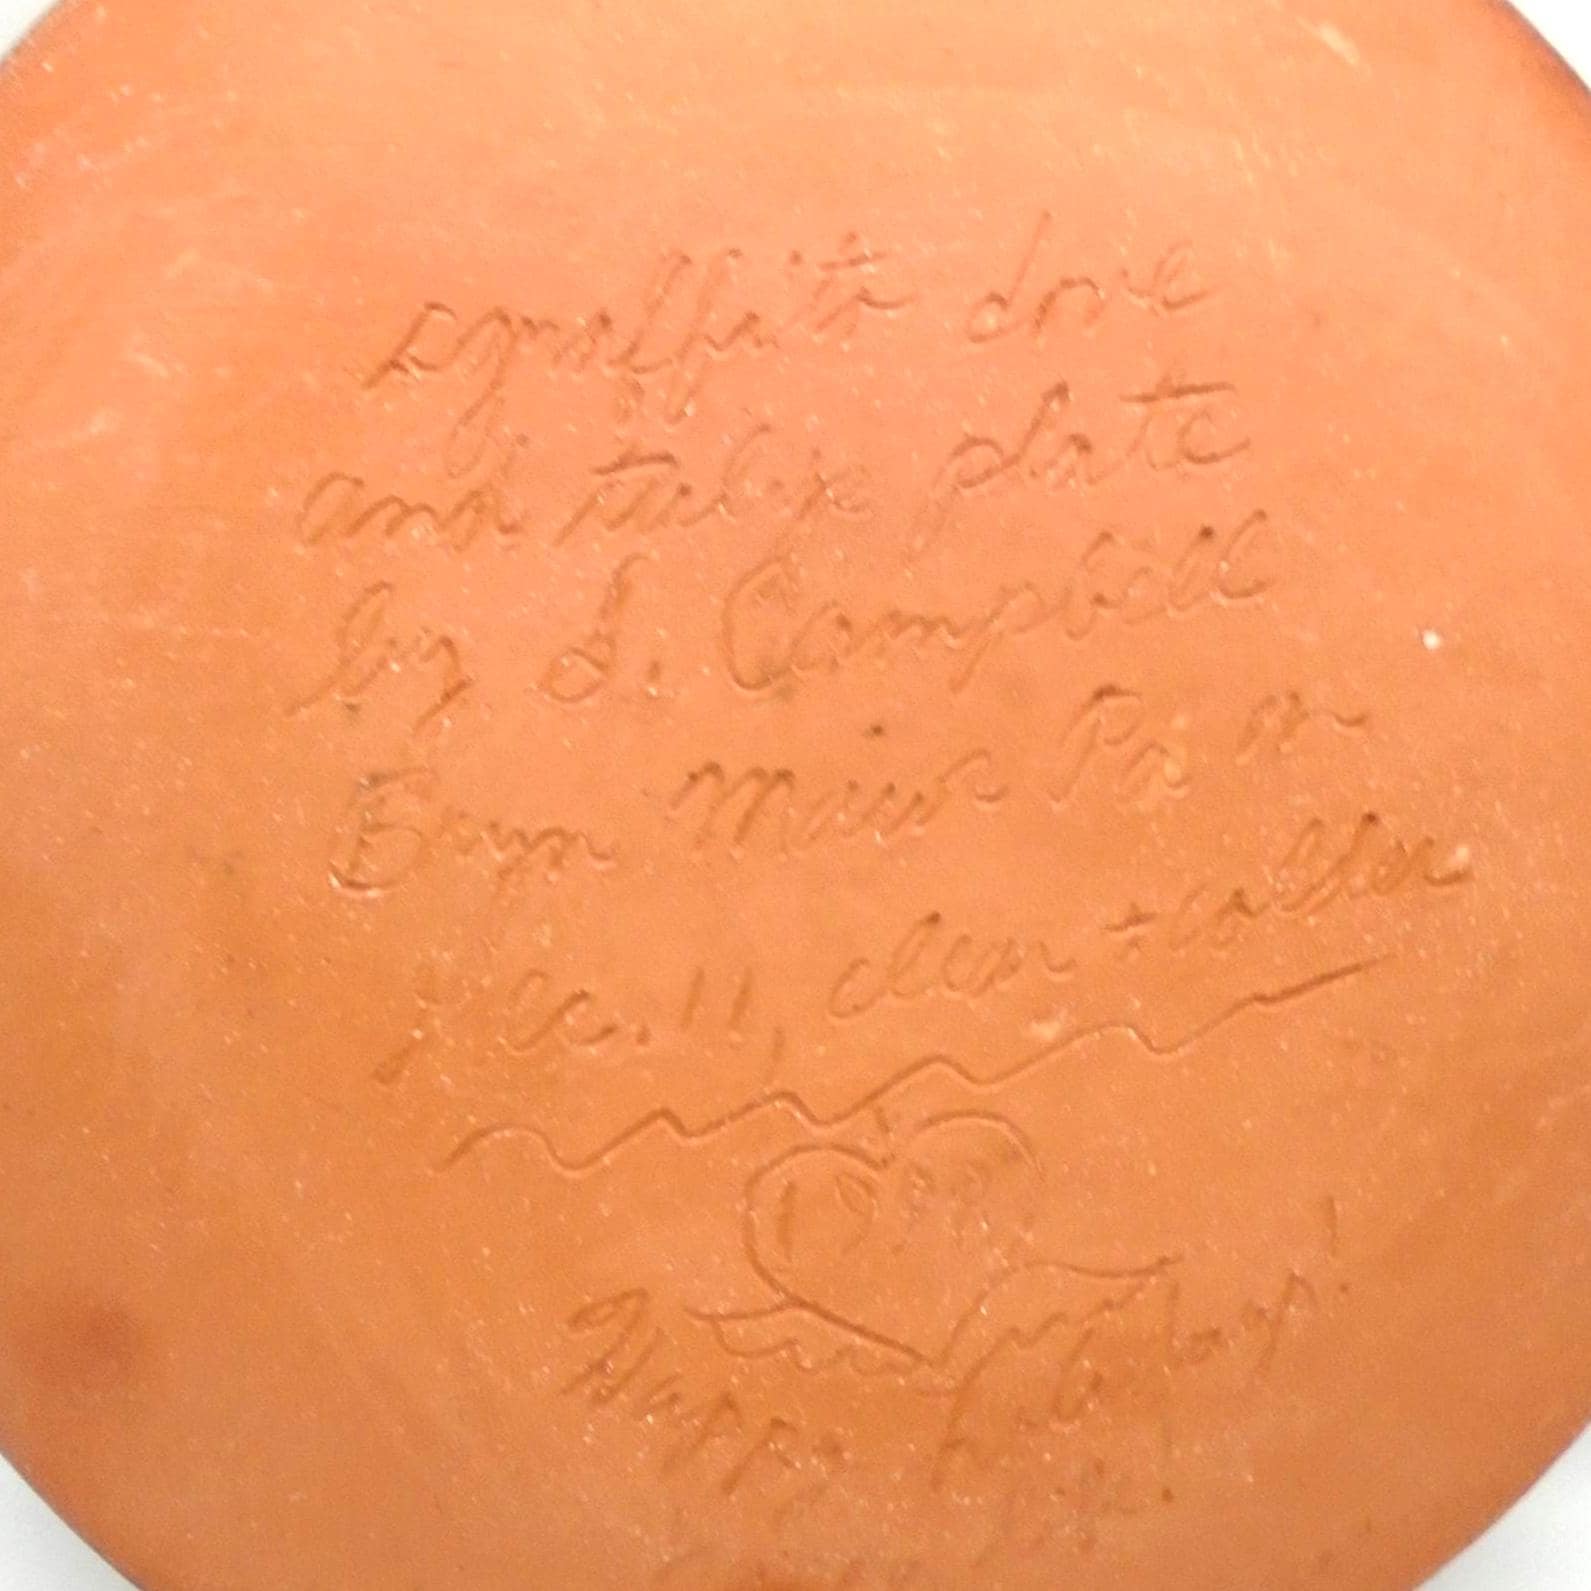 sgraffito dove
and tulip plate
by S. Campbell
Bryn Mawr Pa on
Dec. 11, clear + colder
19
Happy holidays!